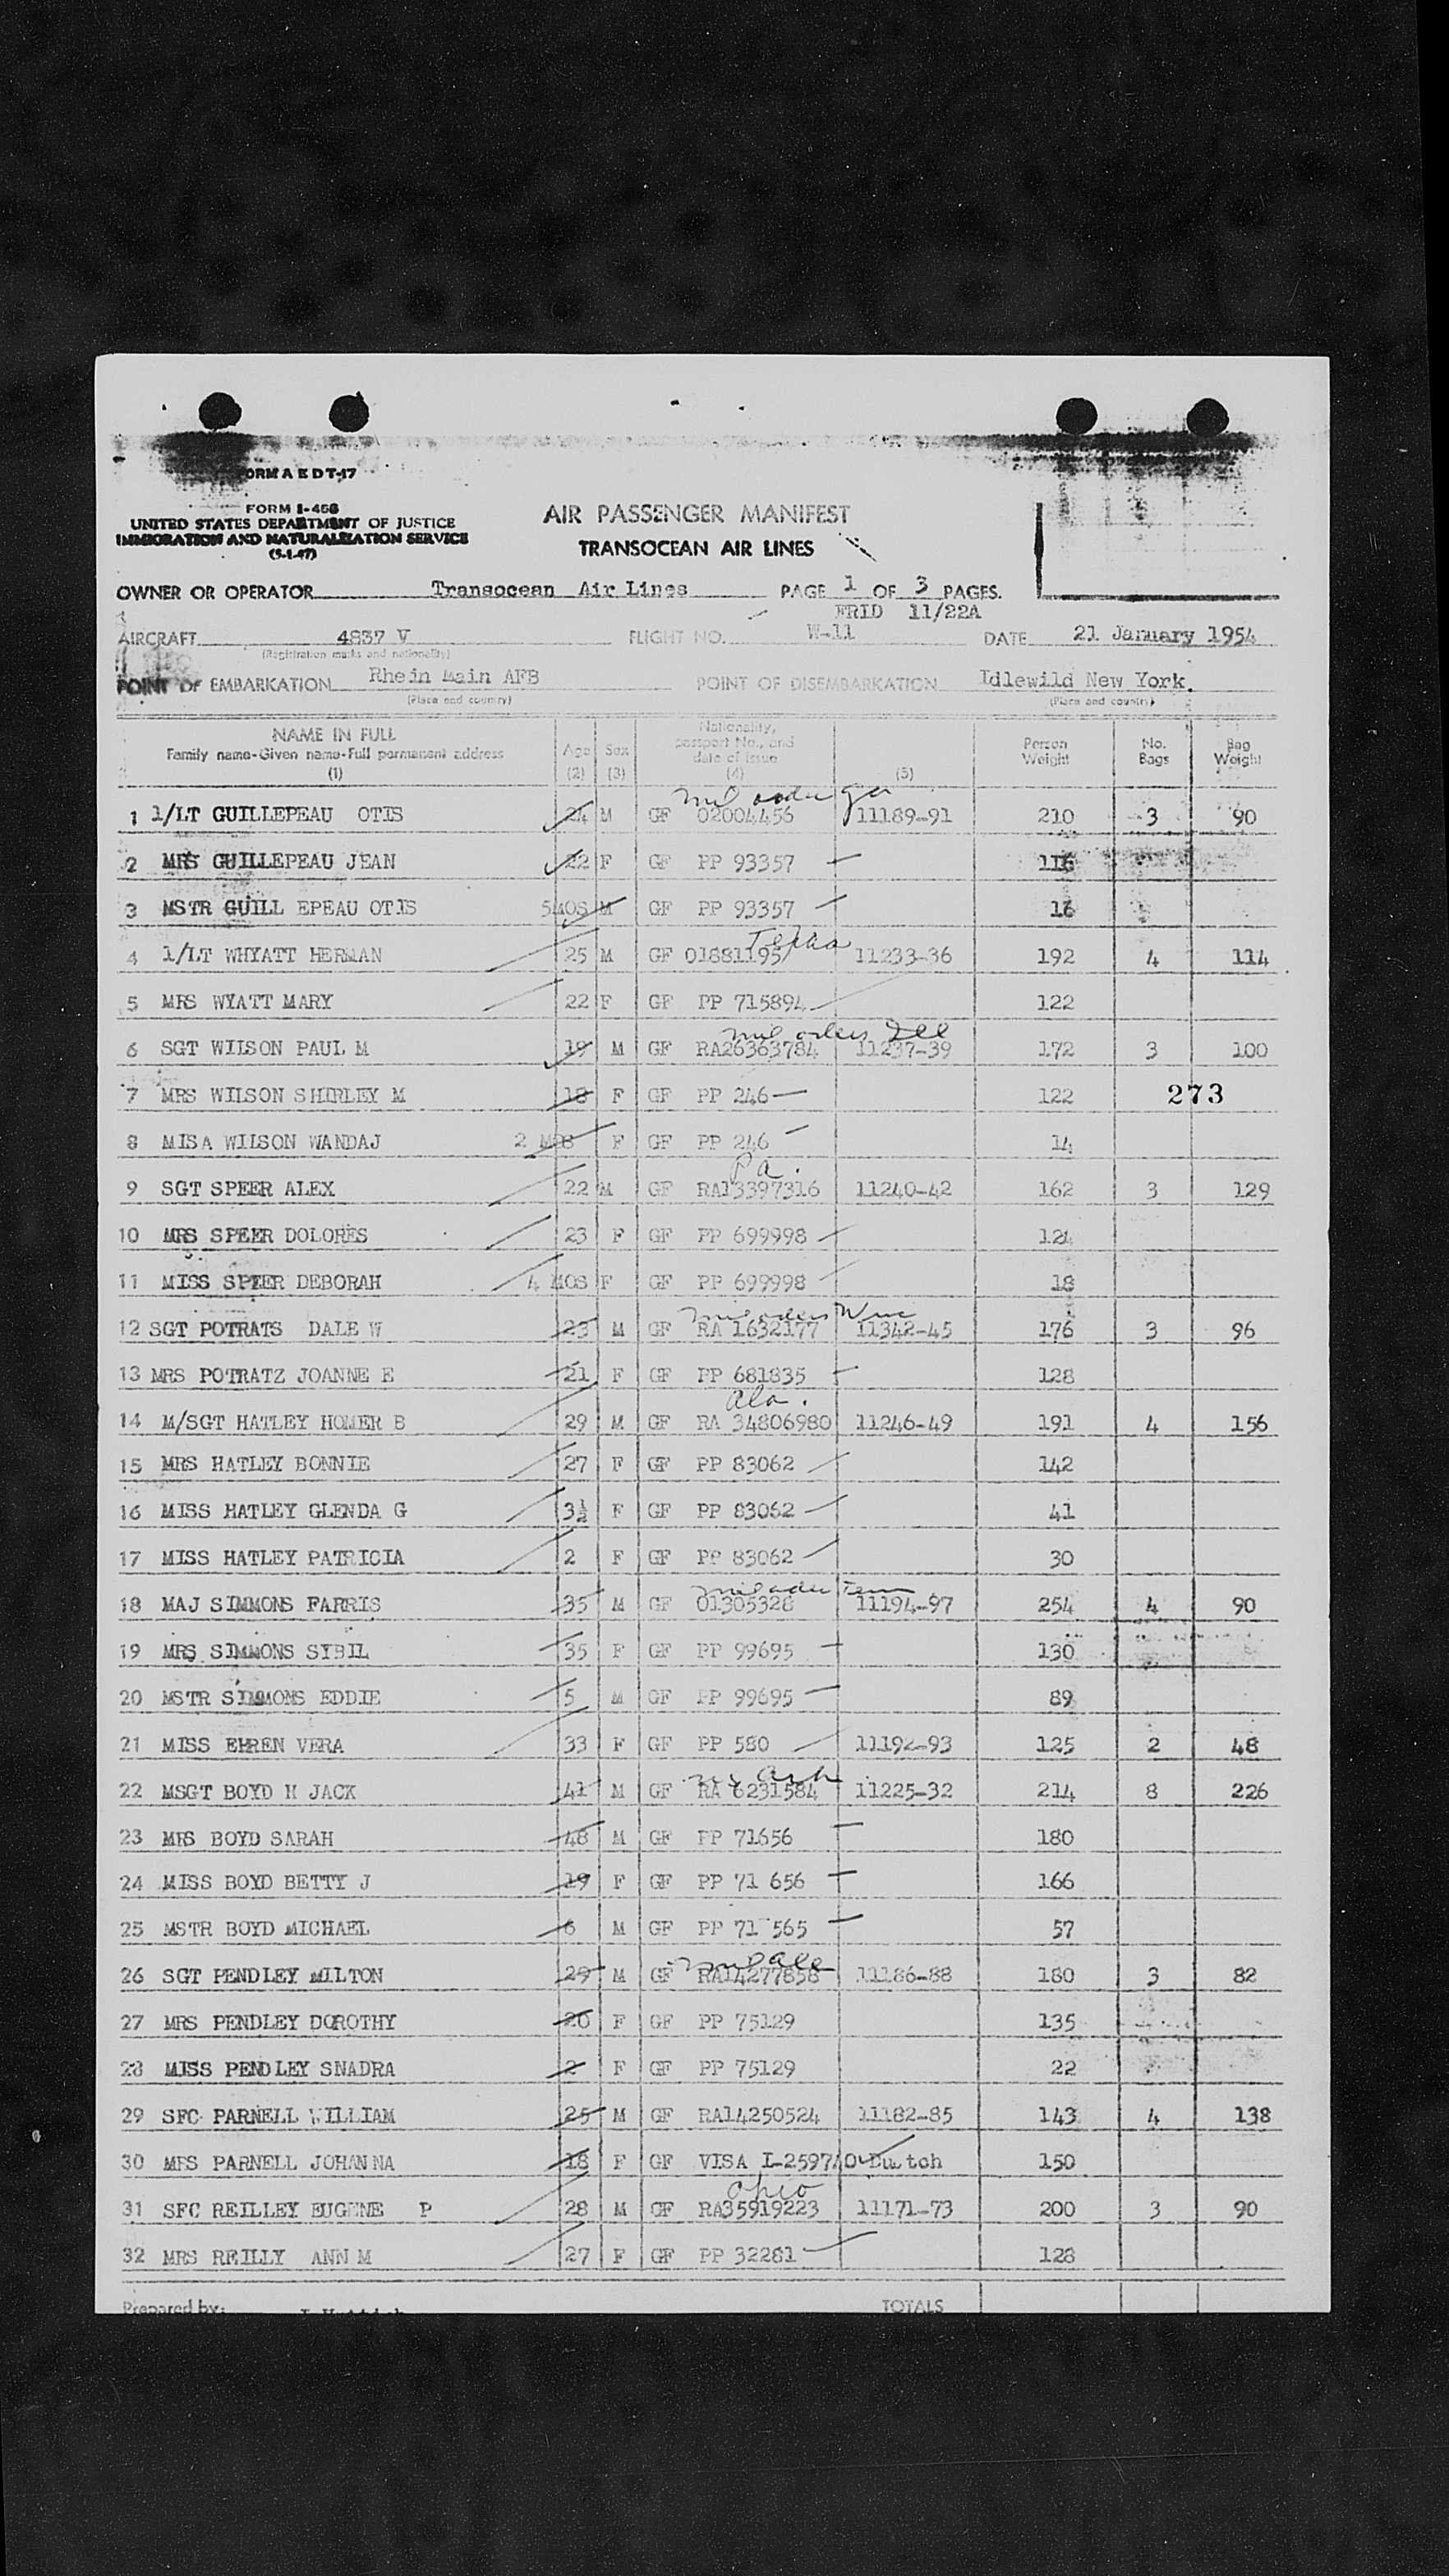 FORM A E D T-17
FORM I-466
UNITED STATES DEPARTMENT OF JUSTICE
IMMIGRATION AND NATURALIZATION SERVICE
(5-1-47)
AIR PASSENGER MANIFEST
TRANSOCEAN AIR LINES
OWNER OR OPERATOR Transocean Air Lines PAGE 1 OF 3 PAGES.
FRID 11/22A
AIRCRAFT 4837 V FLIGHT NO. W-11 DATE 21 January 1954
(Registration marks and nationality)
POINT OF EMBARKATION Rhein Main AFB POINT OF DISEMBARKATION Idlewild New York.
(Place and country) (Place and country)
NAME IN FULL
Family name-Given name-Full permanent address
(1)
Age
(2)
Sex
(3)
Nationality,
passport No., and
date of issue
(4)
(5)
Person
Weight
No.
Bags
Bag
Weight
mil orders Ga
1 1/LT GUILLEPEAU OTIS 24 M GF 02004456 11189-91 210 3 90
2 MRS GUILLEPEAU JEAN 22 F GF PP 93357 116
3 MSTR GUILL EPEAU OTIS 5MOS M GF PP 93357 16
Texas
4 1/LT WHYATT HERMAN 25 M GF 01881195 11233-36 192 4 114
5 MRS WYATT MARY 22 F GF PP 715894 122
mil orders Ill
6 SGT WILSON PAUL M 19 M GF RA26363784 11237-39 172 3 100
7 MRS WILSON SHIRLEY M 18 F GF PP 246 122
273
8 MISA WILSON WANDAJ 2 MOS F GF PP 246 14
Pa.
9 SGT SPEER ALEX 22 M GF RA13397316 11240-42 162 3 129
10 MRS SPEER DOLORES 23 F GF PP 699998 124
11 MISS SPEER DEBORAH 4 MOS F GF PP 699998 18
mil orders Wisc
12 SGT POTRATS DALE W 23 M GF RA 1632177 11342-45 176 3 96
13 MRS POTRATZ JOANNE E 21 F GF PP 681835 128
Ala.
14 M/SGT HATLEY HOMER B 29 M GF RA 34806980 11246-49 191 4 156
15 MRS HATLEY BONNIE 27 F GF PP 83062 142
16 MISS HATLEY GLENDA G 3½ F GF PP 83062 41
17 MISS HATLEY PATRICIA 2 F GF PP 83062 30
mil order Tenn
18 MAJ SIMMONS FARRIS 35 M GF 01305328 11194-97 254 4 90
19 MRS SIMMONS SYBIL 35 F GF PP 99695 130
20 MSTR SIMMONS EDDIE 5 M GF PP 99695 89
21 MISS EHREN VERA 33 F GF PP 580 11192-93 125 2 48
Ark
22 MSGT BOYD H JACK 41 M GF RA 6231584 11225-32 214 8 226
23 MRS BOYD SARAH 48 M GF PP 71656 180
24 MISS BOYD BETTY J 19 F GF PP 71 656 166
25 MSTR BOYD MICHAEL 6 M GF PP 71 565 57
26 SGT PENDLEY MILTON 29 M GF RA14277858 11186-88 180 3 82
27 MRS PENDLEY DOROTHY 20 F GF PP 75129 135
28 MISS PENDLEY SNADRA 2 F GF PP 75129 22
29 SFC PARNELL WILLIAM 25 M GF RA14250524 11182-85 143 4 138
30 MRS PARNELL JOHANNA 18 F GF VISA I-259740 Dutch 150
Ohio
31 SFC REILLEY EUGENE P 28 M GF RA35919223 11171-73 200 3 90
32 MRS REILLY ANN M 27 F GF PP 32281 128
Prepared by: TOTALS